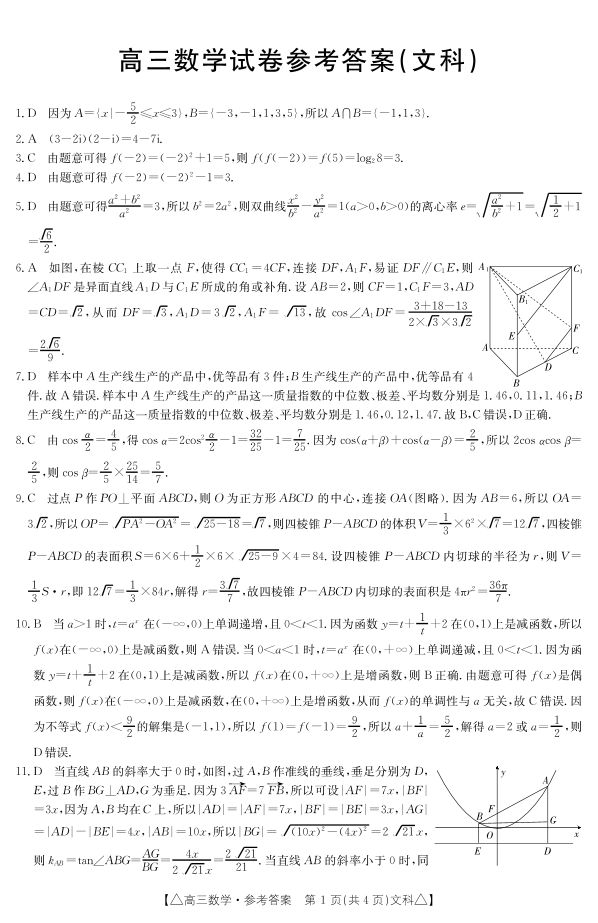 高三数学试卷参考答案(文科)
1. D 因为 A={x|-5/2≤x≤3}, B={-3,-1,1,3,5}, 所以 A∩B={-1,1,3}.
2. A (3-2i)(2-i)=4-7i.
3. C 由题意可得 f(-2)=(-2)²+1=5, 则 f(f(-2))=f(5)=log₂8=3.
4. D 由题意可得 f(-2)=(-2)²-1=3.
5. D 由题意可得(a²+b²)/a²=3, 所以 b²=2a², 则双曲线x²/b²-y²/a²=1(a>0,b>0)的离心率 e=√(a²/b²+1)=√(1/2+1)
=√6/2.
6. A 如图, 在棱 CC₁ 上取一点 F, 使得 CC₁=4CF, 连接 DF, A₁F, 易证 DF∥C₁E, 则
∠A₁DF 是异面直线 A₁D 与 C₁E 所成的角或补角. 设 AB=2, 则 CF=1, C₁F=3, AD
=CD=√2, 从而 DF=√3, A₁D=3√2, A₁F=√13, 故 cos∠A₁DF=(3+18-13)/(2×√3×3√2)
=2√6/9.
A₁ C₁
B₁
F
E
A C
D
B
7. D 样本中 A 生产线生产的产品中, 优等品有 3 件; B 生产线生产的产品中, 优等品有 4
件. 故 A 错误. 样本中 A 生产线生产的产品这一质量指数的中位数、极差、平均数分别是 1.46, 0.11, 1.46; B
生产线生产的产品这一质量指数的中位数、极差、平均数分别是 1.46, 0.12, 1.47. 故 B, C 错误, D 正确.
8. C 由 cos α/2=4/5, 得 cos α=2cos²α/2-1=32/25-1=7/25. 因为 cos(α+β)+cos(α-β)=2/5, 所以 2cos αcos β=
2/5, 则 cos β=2/5×25/14=5/7.
9. C 过点 P 作 PO⊥平面 ABCD, 则 O 为正方形 ABCD 的中心, 连接 OA(图略). 因为 AB=6, 所以 OA=
3√2, 所以 OP=√(PA²-OA²)=√(25-18)=√7, 则四棱锥 P-ABCD 的体积 V=1/3×6²×√7=12√7, 四棱锥
P-ABCD 的表面积 S=6×6+1/2×6×√(25-9)×4=84. 设四棱锥 P-ABCD 内切球的半径为 r, 则 V=
1/3 S·r, 即 12√7=1/3×84r, 解得 r=3√7/7, 故四棱锥 P-ABCD 内切球的表面积是 4πr²=36π/7.
10. B 当 a>1 时, t=aˣ 在(-∞,0)上单调递增, 且 0<t<1. 因为函数 y=t+1/t+2 在(0,1)上是减函数, 所以
f(x)在(-∞,0)上是减函数, 则 A 错误. 当 0<a<1 时, t=aˣ 在(0,+∞)上单调递减, 且 0<t<1. 因为函
数 y=t+1/t+2 在(0,1)上是减函数, 所以 f(x)在(0,+∞)上是增函数, 则 B 正确. 由题意可得 f(x)是偶
函数, 则 f(x)在(-∞,0)上是减函数, 在(0,+∞)上是增函数, 从而 f(x)的单调性与 a 无关, 故 C 错误. 因
为不等式 f(x)<9/2的解集是(-1,1), 所以 f(1)=f(-1)=9/2, 所以 a+1/a=5/2, 解得 a=2 或 a=1/2, 则
D 错误.
11. D 当直线 AB 的斜率大于 0 时, 如图, 过 A, B 作准线的垂线, 垂足分别为 D,
E, 过 B 作 BG⊥AD, G 为垂足. 因为 3AF→=7FB→, 所以可设|AF|=7x, |BF|
=3x, 因为 A, B 均在 C 上, 所以|AD|=|AF|=7x, |BF|=|BE|=3x, |AG|
=|AD|-|BE|=4x, |AB|=10x, 所以|BG|=√((10x)²-(4x)²)=2√21x,
则 k_AB=tan∠ABG=AG/BG=4x/(2√21x)=2√21/21. 当直线 AB 的斜率小于 0 时, 同
y
A
F
B G
O x
E D
【△高三数学·参考答案 第 1 页(共 4 页)文科△】